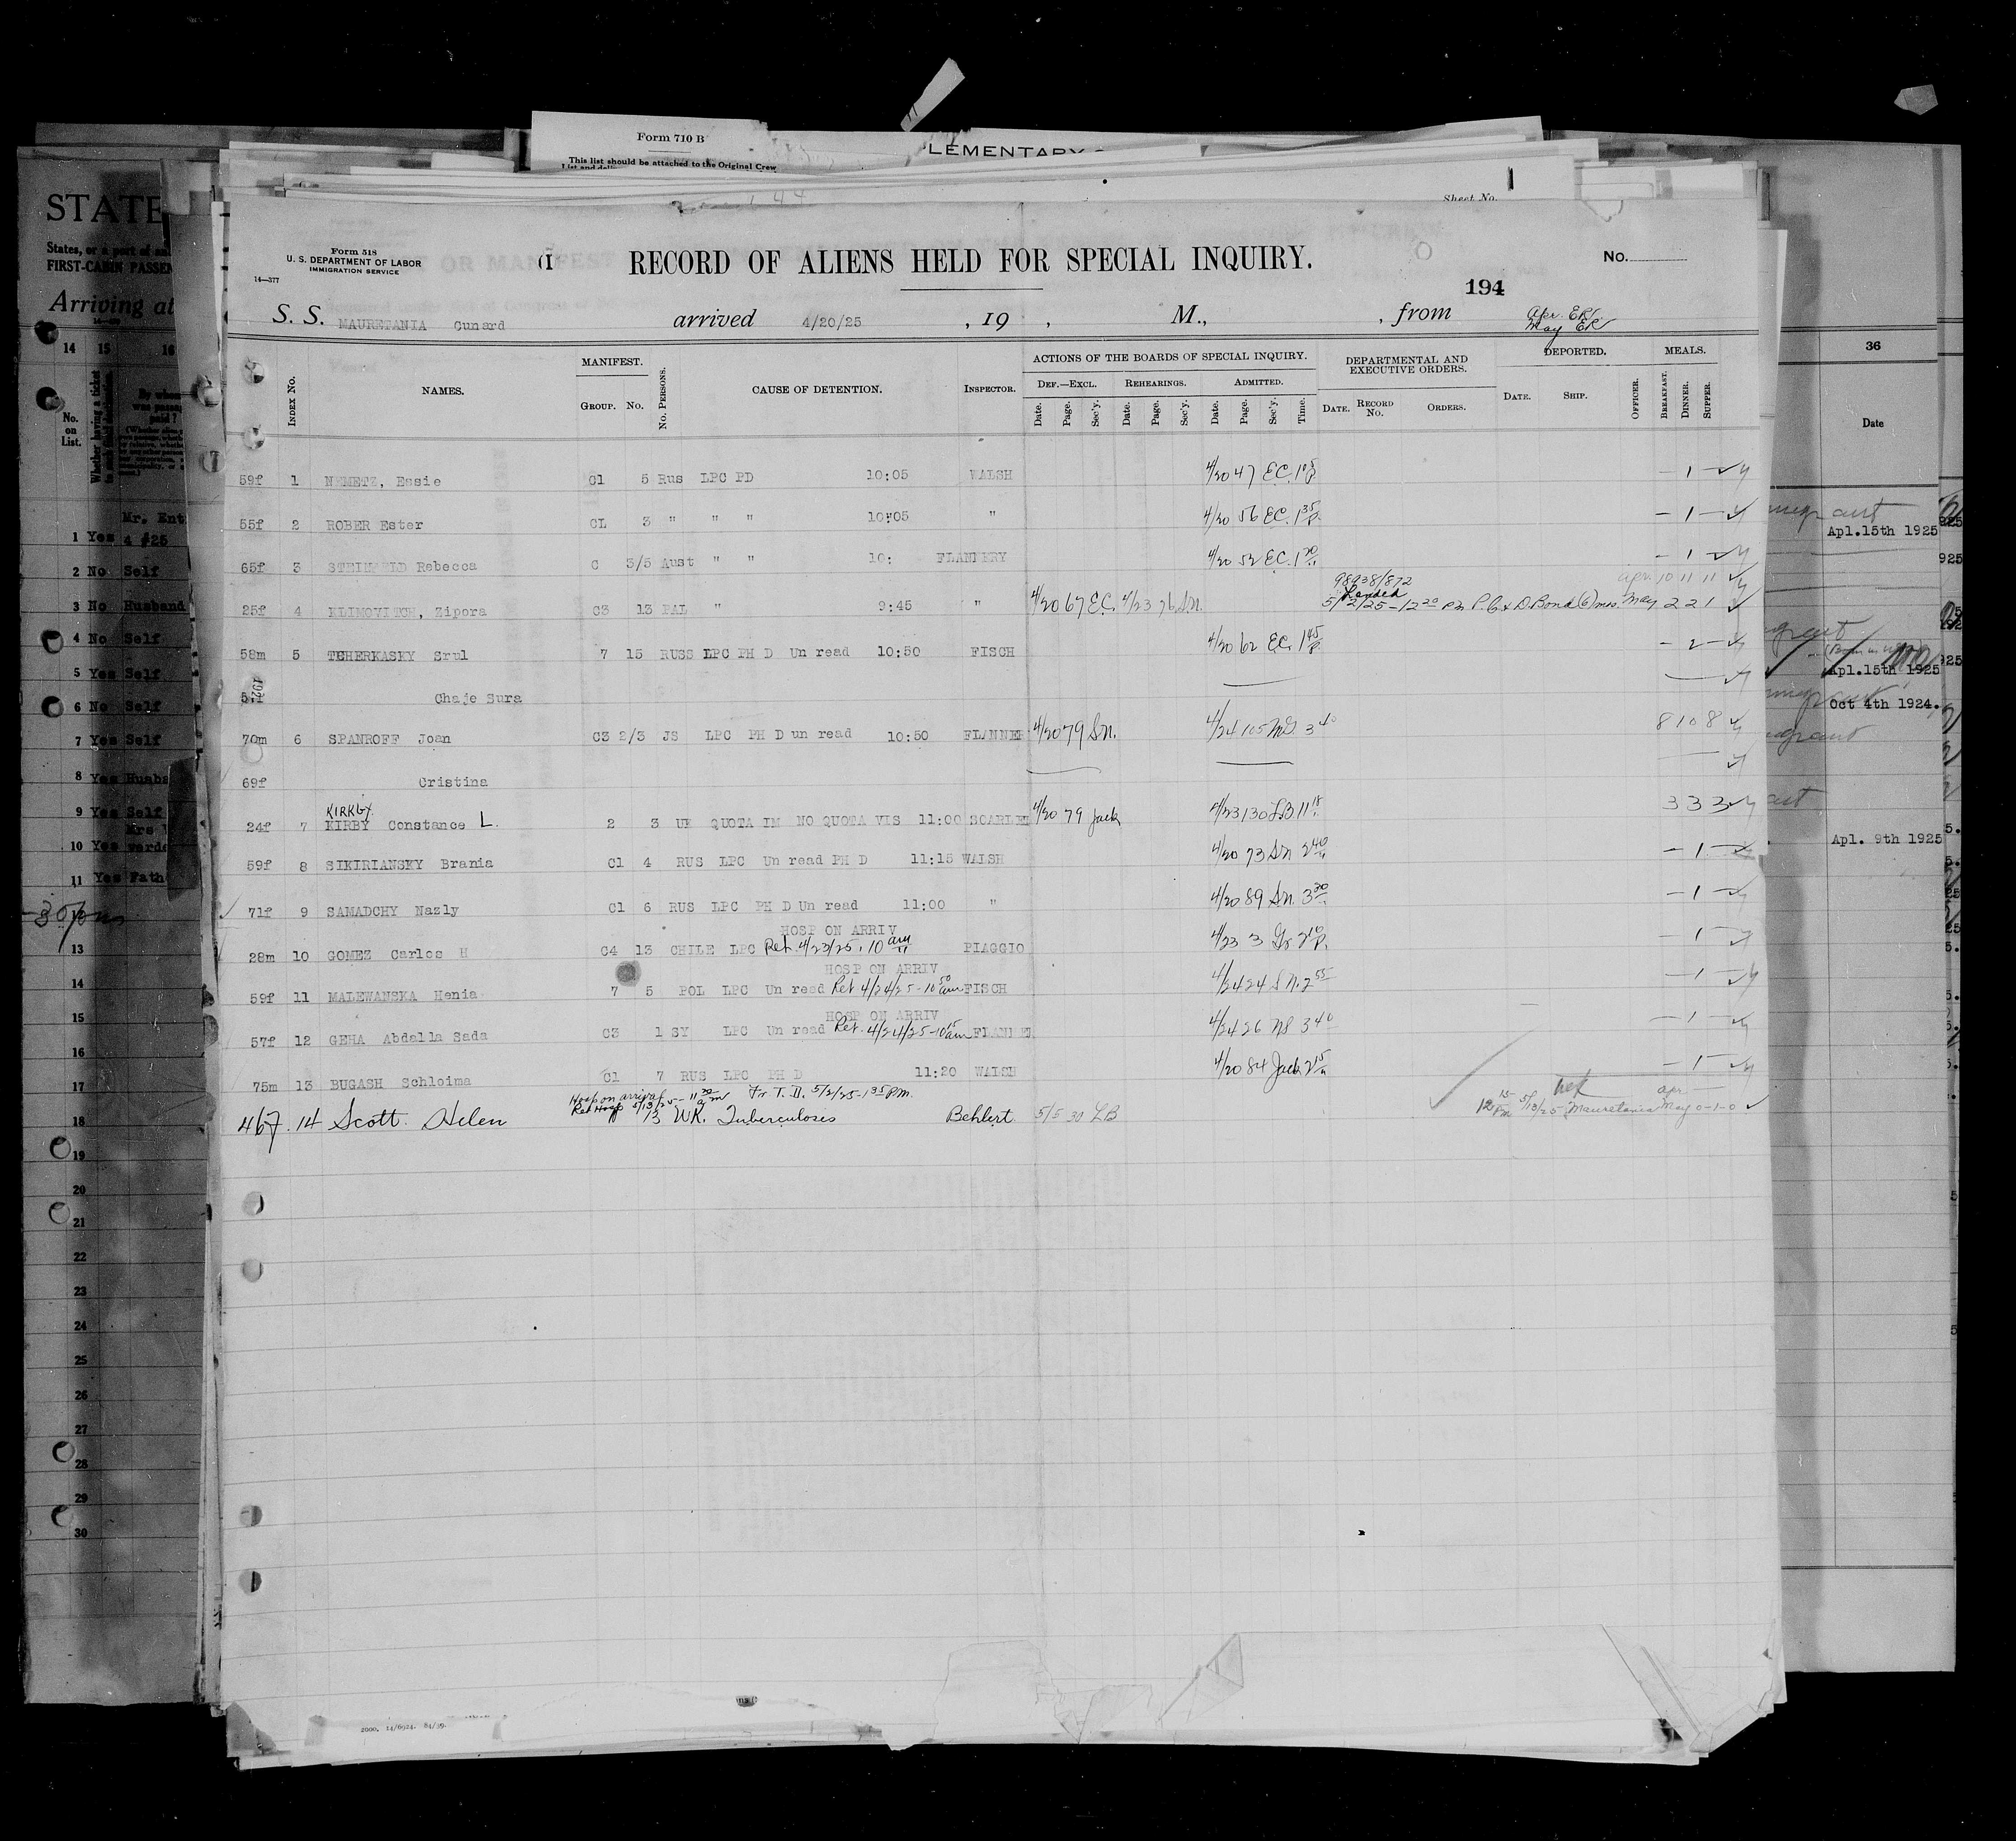 Form 710 B
This list should be attached to the Original Crew
LEMENTARY
Sheet No.
STATE
States, or a part of an
FIRST-CABIN PASSEN
Arriving at
Form 518
U. S. DEPARTMENT OF LABOR
IMMIGRATION SERVICE
14—577
RECORD OF ALIENS HELD FOR SPECIAL INQUIRY.
No.
194
S. S. MAURETANIA Cunard arrived 4/20/25, 19 , M., , from
Apr. ER
May ER
INDEX No. NAMES. MANIFEST. GROUP. No. No. PERSONS. CAUSE OF DETENTION. INSPECTOR. ACTIONS OF THE BOARDS OF SPECIAL INQUIRY. DEPARTMENTAL AND EXECUTIVE ORDERS. DEPORTED. MEALS.
DEF.—EXCL. REHEARINGS. ADMITTED.
Date. Page. Sec'y. Date. Page. Sec'y. Date. Page. Sec'y. Time. DATE. RECORD No. ORDERS. DATE. SHIP. OFFICER. BREAKFAST. DINNER. SUPPER.
59f 1 NEMETZ, Essie C1 5 Rus LPC PD 10:05 WALSH 4/20 47 EC. — 1 —
55f 2 ROBER Ester CL 3 " " " 10:05 " 4/20 56 EC. 1 35 P. — 1 —
65f 3 Rebecca C 3/5 Aust " " 10: FLANNERY 4/20 52 EC. — 1 —
98938/872
Landed
apr. 10 11 11
25f 4 KLIMOVITCH, Zipora C3 13 PAL " 9:45 " 4/20 67 EC. 4/23 76 SN. 5/2/25 – 12 20 PM P.C. & D. Bond (6) mos. May 2 2 1
58m 5 TCHERKASKY Srul 7 15 RUSS LPC PH D Un read 10:50 FISCH 4/20 62 EC. 1 45 P. — 2 —
Chaje Sura
70m 6 SPANROFF Joan C3 2/3 JS LPC PH D un read 10:50 FLANNER 4/20 79 SN. 4/24 105 3 40 8 10 8
69f Cristina
KIRKBY
24f 7 KIRBY Constance L. 2 3 UK QUOTA IM NO QUOTA VIS 11:00 SCARLET 4/20 79 Jack 4/23 130 LB 11 18 3 3 3
59f 8 SIKIRIANSKY Brania C1 4 RUS LPC Un read PH D 11:15 WALSH 4/20 73 SN 2 40 — 1 —
71f 9 SAMADCHY Nazly C1 6 RUS LPC PH D Un read 11:00 " 4/20 89 SN. 3 20 — 1 —
HOSP ON ARRIV
28m 10 GOMEZ Carlos H C4 13 CHILE LPC Ret. 4/23/25. 10 am PIAGGIO 4/23 3 Gr 2 10 P. — 1 —
HOSP ON ARRIV
59f 11 MALEWANSKA Henia 7 5 POL LPC Un read Ret 4/24/25 - 10 50 am FISCH 4/24 24 SN. 2 55 — 1 —
HOSP ON ARRIV
57f 12 GEHA Abdalla Sada C3 1 SY LPC Un read Ret. 4/24/25 - 10 15 am FLANNER 4/24 26 3 40 — 1 —
75m 13 BUGASH Schloima C1 7 RUS LPC PH D 11:20 WALSH 4/20 84 Jack 2 15 — 1 —
Hosp on arrival
Ret Hosp 5/13/25 – 11 20 am Fr. T. D. 5/2/25 - 1 35 PM.
apr. —
46f. 14 Scott Helen 13 UK. Tuberculoses Behlert 5/5 30 LB 12 15 PM 5/13/25 Mauretania May 0-1-0
2000. 14/6924. 84/39.
14 15 16
No. on List.
Whether having a ticket
1 Yes
2 No Self
3 No Husband
4 No Self
5 Yes Self
6 No Self
7 Yes Self
8 Yes Husba
9 Yes Self
10 Yes
11 Yes Fath
13
14
15
16
17
18
19
20
21
22
23
24
25
26
27
28
29
30
36
Date
Apl.15th 1925
Apl.15th 1925
Oct 4th 1924.
Apl. 9th 1925